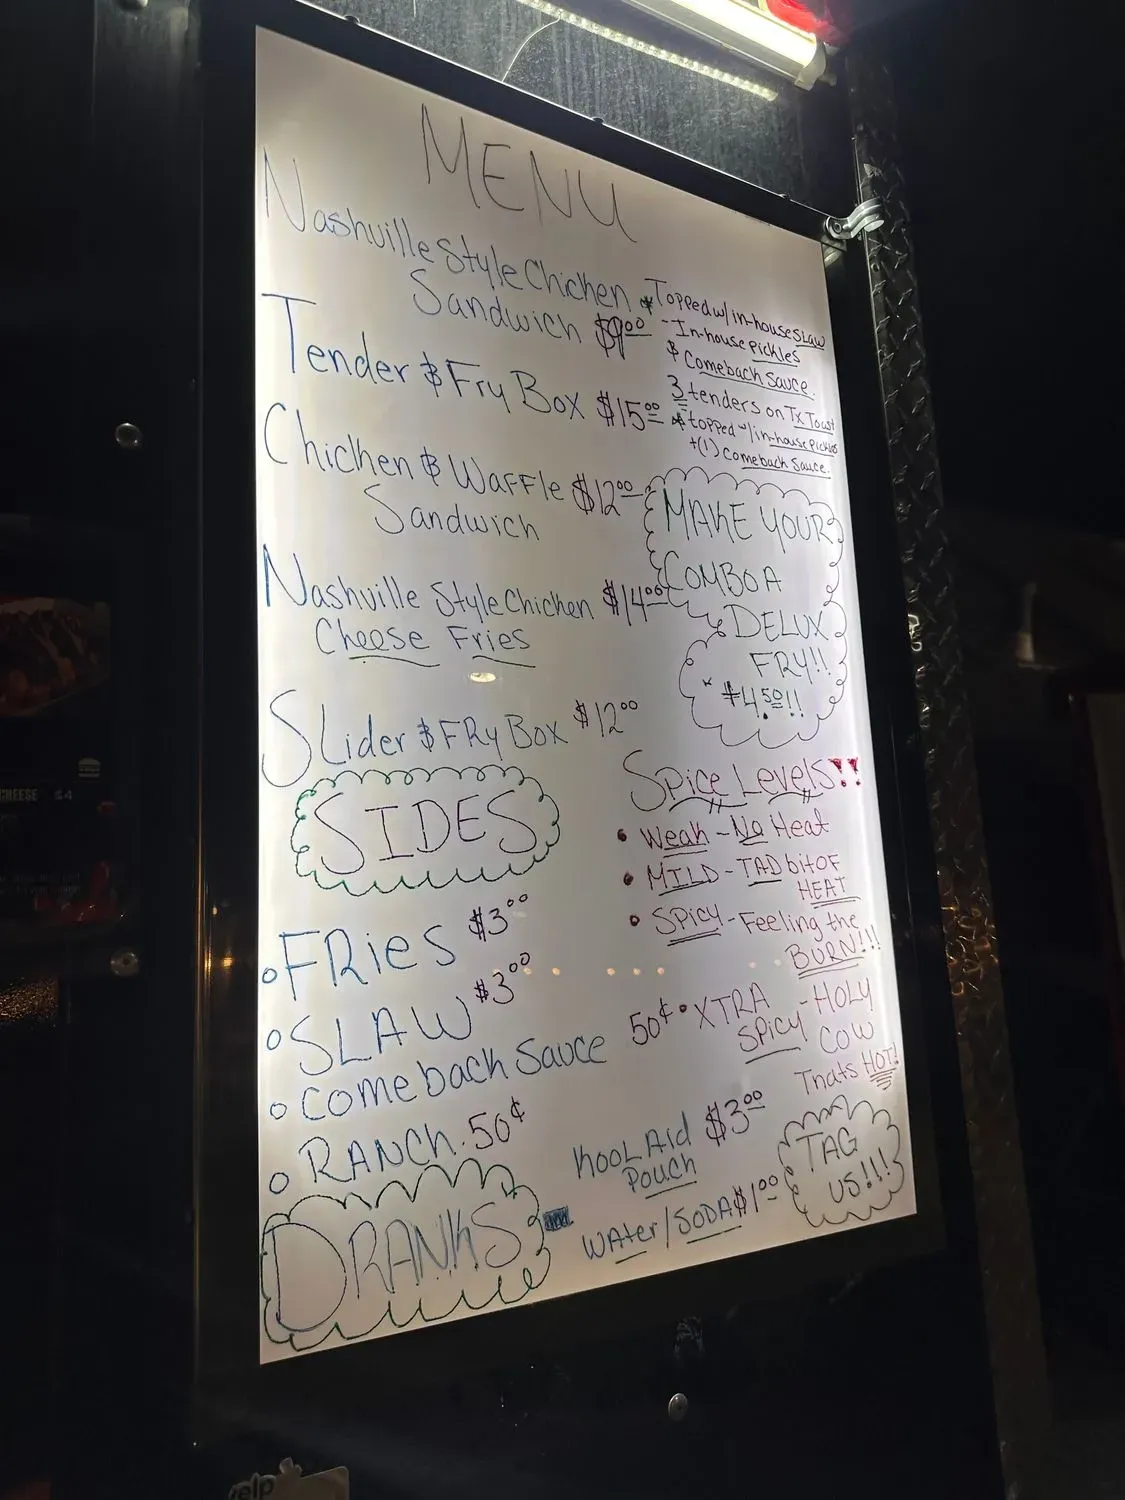 MENU
Nashville Style Chicken
Sandwich $9.00
* Topped w/ in-house SLAW
- In-house pickles
& Comeback Sauce.
Tender & Fry Box $15.00
3 tenders on Tx Toast
* topped w/ in-house pickles
+(1) Comeback Sauce.
Chicken & Waffle $12.00
Sandwich
MAKE YOUR
COMBO A
DELUX
FRY!!
+4.50!!
Nashville Style Chicken $14.00
Cheese Fries
Slider & FRy Box $12.00
SIDES
FRies $3.00
SLAW $3.00
Comeback Sauce 50¢
RANCH. 50¢
Spice Levels!!
• Weak - No Heat
• MILD - TAD bit OF
HEAT
• SPicy - Feeling the
BURN!!!
• XTRA - HOLY
SPicy COW
Thats HOT!
DRANKS
KOOL Aid $3.00
Pouch
WAter/SODA $1.00
TAG
US!!!
CHEESE $4
elp